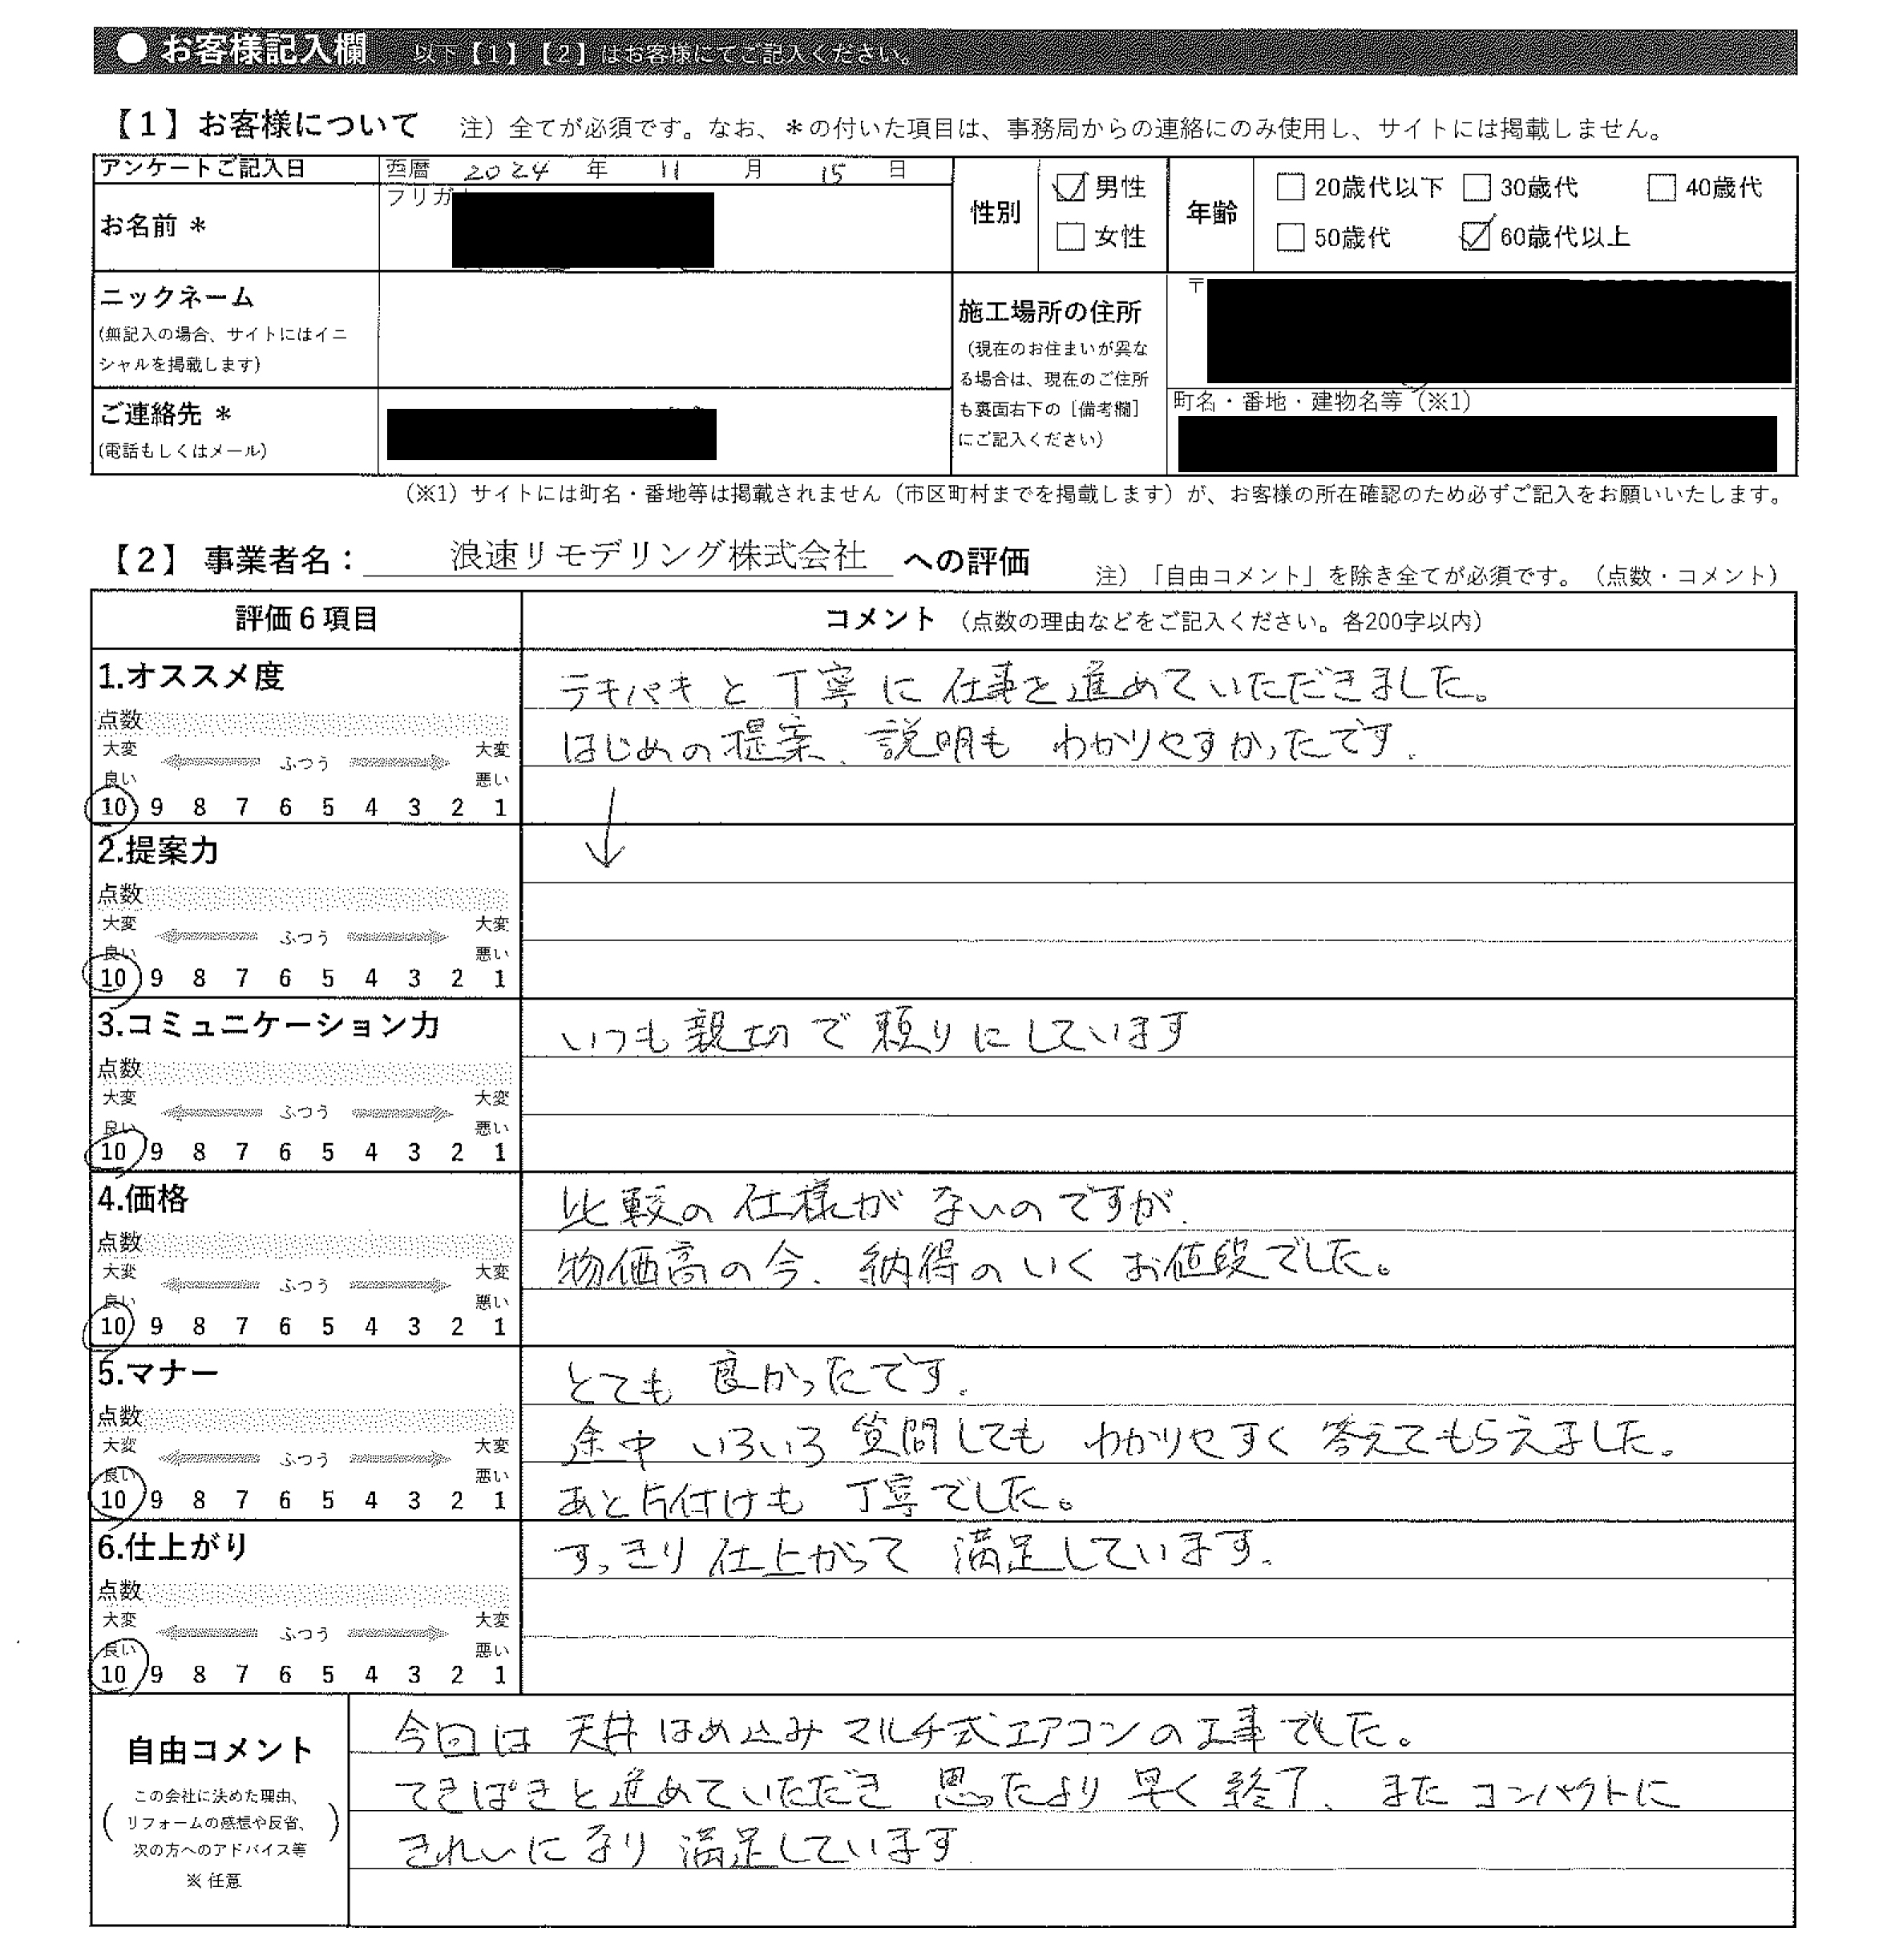 ● お客様記入欄 以下【1】【2】はお客様にてご記入ください。
【1】お客様について 注）全てが必須です。なお、＊の付いた項目は、事務局からの連絡にのみ使用し、サイトには掲載しません。
アンケートご記入日 西暦 2024 年 11 月 15 日
お名前 ＊ フリガ
性別 ☑男性 □女性
年齢 □20歳代以下 □30歳代 □40歳代
□50歳代 ☑60歳代以上
ニックネーム
(無記入の場合、サイトにはイニ
シャルを掲載します)
ご連絡先 ＊
(電話もしくはメール)
施工場所の住所 〒
（現在のお住まいが異な
る場合は、現在のご住所
も裏面右下の［備考欄］
にご記入ください）
町名・番地・建物名等（※1）
（※1）サイトには町名・番地等は掲載されません（市区町村までを掲載します）が、お客様の所在確認のため必ずご記入をお願いいたします。
【2】 事業者名： 浪速リモデリング株式会社 への評価 注）「自由コメント」を除き全てが必須です。（点数・コメント）
評価６項目 コメント （点数の理由などをご記入ください。各200字以内）
1.オススメ度
点数
大変 ふつう 大変
良い 悪い
10 9 8 7 6 5 4 3 2 1
テキパキと丁寧に仕事を進めていただきました。
はじめの提案、説明も わかりやすかったです.
↓
2.提案力
点数
大変 ふつう 大変
良い 悪い
10 9 8 7 6 5 4 3 2 1
3.コミュニケーション力
点数
大変 ふつう 大変
良い 悪い
10 9 8 7 6 5 4 3 2 1
いつも親切で頼りにしています
4.価格
点数
大変 ふつう 大変
良い 悪い
10 9 8 7 6 5 4 3 2 1
比較の仕様がないのですが.
物価高の今、納得のいくお値段でした。
5.マナー
点数
大変 ふつう 大変
良い 悪い
10 9 8 7 6 5 4 3 2 1
とても 良かったです.
途中 いろいろ 質問しても わかりやすく 答えてもらえました。
あと片付けも 丁寧でした。
6.仕上がり
点数
大変 ふつう 大変
良い 悪い
10 9 8 7 6 5 4 3 2 1
すっきり 仕上がって 満足しています.
自由コメント
（この会社に決めた理由、
リフォームの感想や反省、
次の方へのアドバイス等）
※ 任意
今回は 天井はめ込みマルチ式エアコンの工事でした。
てきぱきと進めていただき 思ったより 早く 終了、また コンパクトに
きれいになり 満足しています